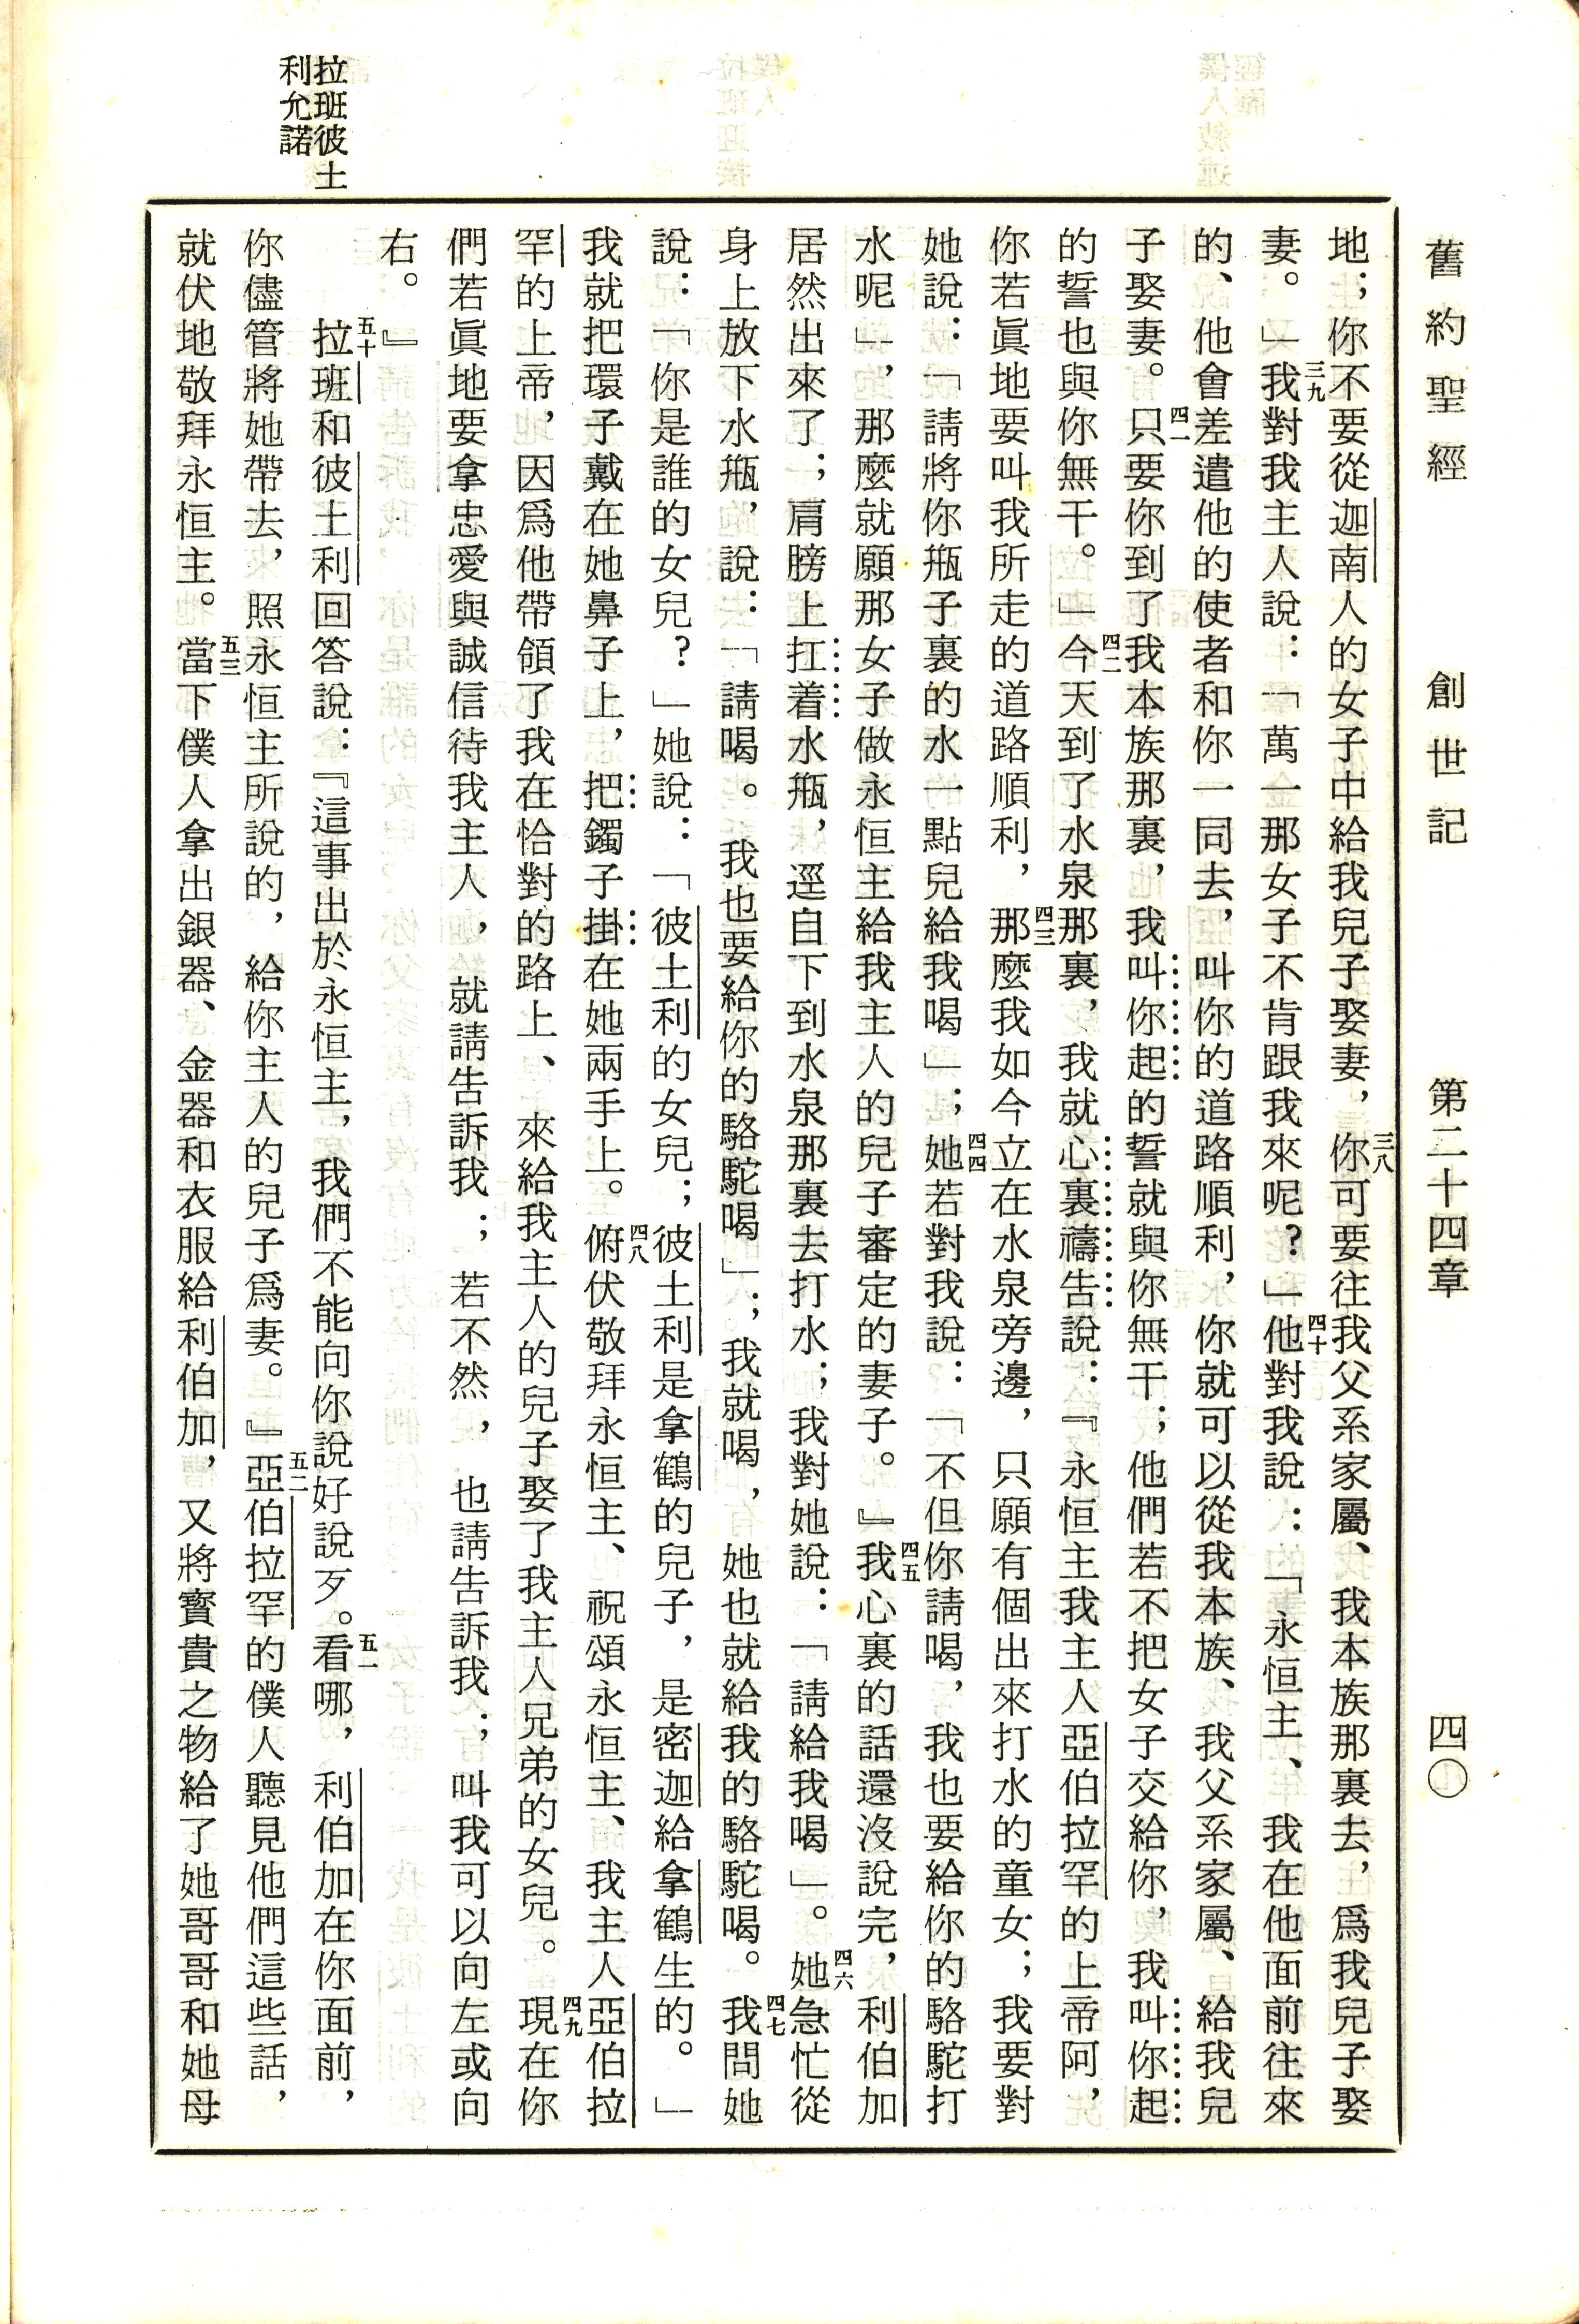 舊約聖經 創世記 第二十四章 四〇
地；你不要從迦南人的女子中給我兒子娶妻，三八你可要往我父系家屬、我本族那裏去，爲我兒子娶
妻。」三九我對我主人說：「萬一那女子不肯跟我來呢？」四十他對我說：「永恒主、我在他面前往來
的、他會差遣他的使者和你一同去，叫你的道路順利，你就可以從我本族、我父系家屬、給我兒
子娶妻。四一只要你到了我本族那裏，我叫你起的誓就與你無干；他們若不把女子交給你，我叫你起
的誓也與你無干。」四二今天到了水泉那裏，我就心裏禱告說：『永恒主我主人亞伯拉罕的上帝阿，
你若眞地要叫我所走的道路順利，四三那麼我如今立在水泉旁邊，只願有個出來打水的童女；我要對
她說：「請將你瓶子裏的水一點兒給我喝」；四四她若對我說：「不但你請喝，我也要給你的駱駝打
水呢」，那麼就願那女子做永恒主給我主人的兒子審定的妻子。』四五我心裏的話還沒說完，利伯加
居然出來了；肩膀上扛着水瓶，逕自下到水泉那裏去打水；我對她說：「請給我喝」。四六她急忙從
身上放下水瓶，說：「請喝。我也要給你的駱駝喝」；我就喝，她也就給我的駱駝喝。四七我問她
說：「你是誰的女兒？」她說：「彼土利的女兒；彼土利是拿鶴的兒子，是密迦給拿鶴生的。」
我就把環子戴在她鼻子上，把鐲子掛在她兩手上。四八俯伏敬拜永恒主、祝頌永恒主、我主人亞伯拉
罕的上帝，因爲他帶領了我在恰對的路上、來給我主人的兒子娶了我主人兄弟的女兒。四九現在你
們若眞地要拿忠愛與誠信待我主人，就請告訴我；若不然，也請告訴我；叫我可以向左或向
右。』
拉班彼土
利允諾
五十拉班和彼土利回答說：『這事出於永恒主，我們不能向你說好說歹。五一看哪，利伯加在你面前，
你儘管將她帶去，照永恒主所說的，給你主人的兒子爲妻。』五二亞伯拉罕的僕人聽見他們這些話，
就伏地敬拜永恒主。五三當下僕人拿出銀器、金器和衣服給利伯加，又將寳貴之物給了她哥哥和她母